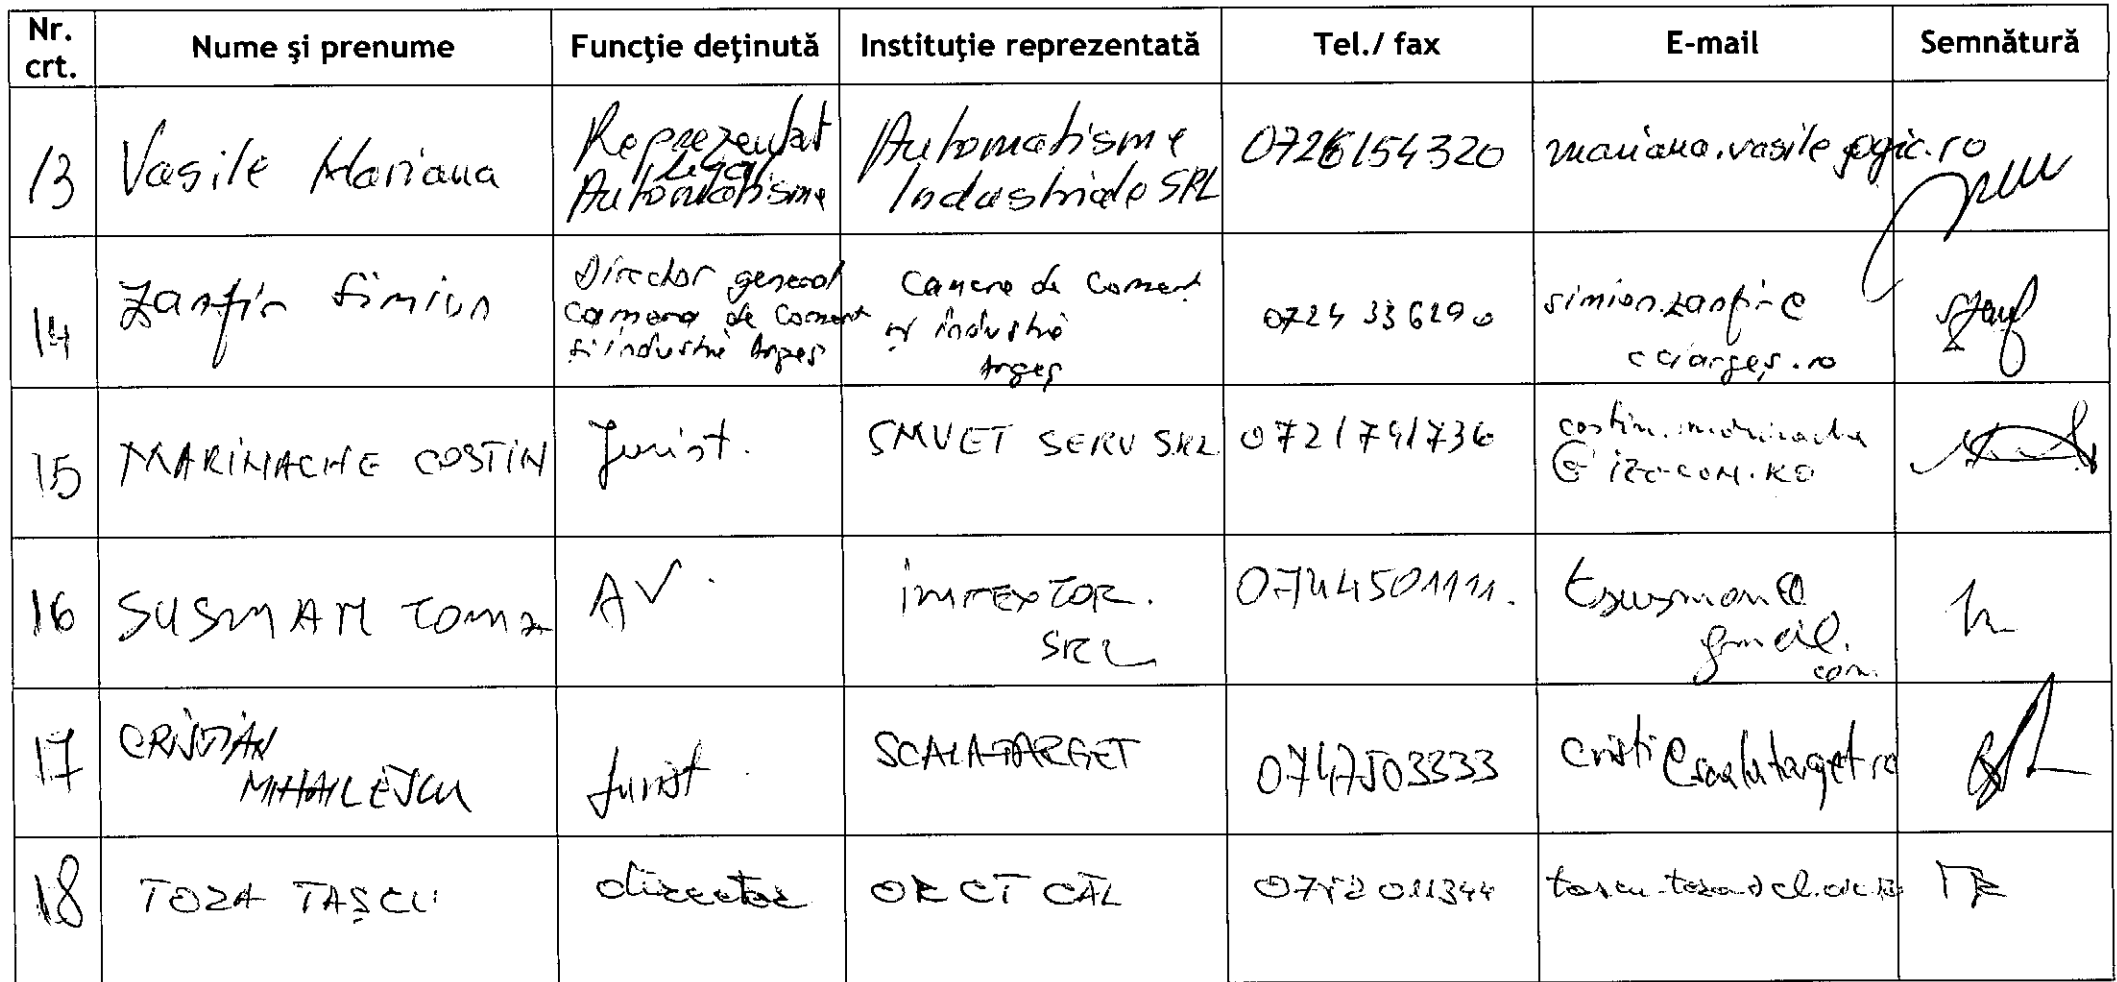 Nr. crt. Nume şi prenume Funcţie deţinută Instituţie reprezentată Tel./ fax E-mail Semnătură
13 Vasile Mariana Reprezentat Legal Automatisme Automatisme Industriale SRL 0726154320 mariana.vasile
14 Zanfir Simion Director general Camera de Comert si industrie Argeş Camera de Comert si industrie Argeş 0724 336290 simion.zanfir@cciargeş.ro
15 MARINACHE COSTIN Jurist. SMVET SERV SRL 0721741736 costin.marinache
16 SUSMAN TOMA AV. IMPEXTOR. SRL 0744501111. tsusman@gmail.com.
17 CRISTIAN MIHAILESCU Jurist. SCALA TARGET 0747503333 cristi@scalatarget.ro
18 TOZA TAŞCU director ORCT CĂL